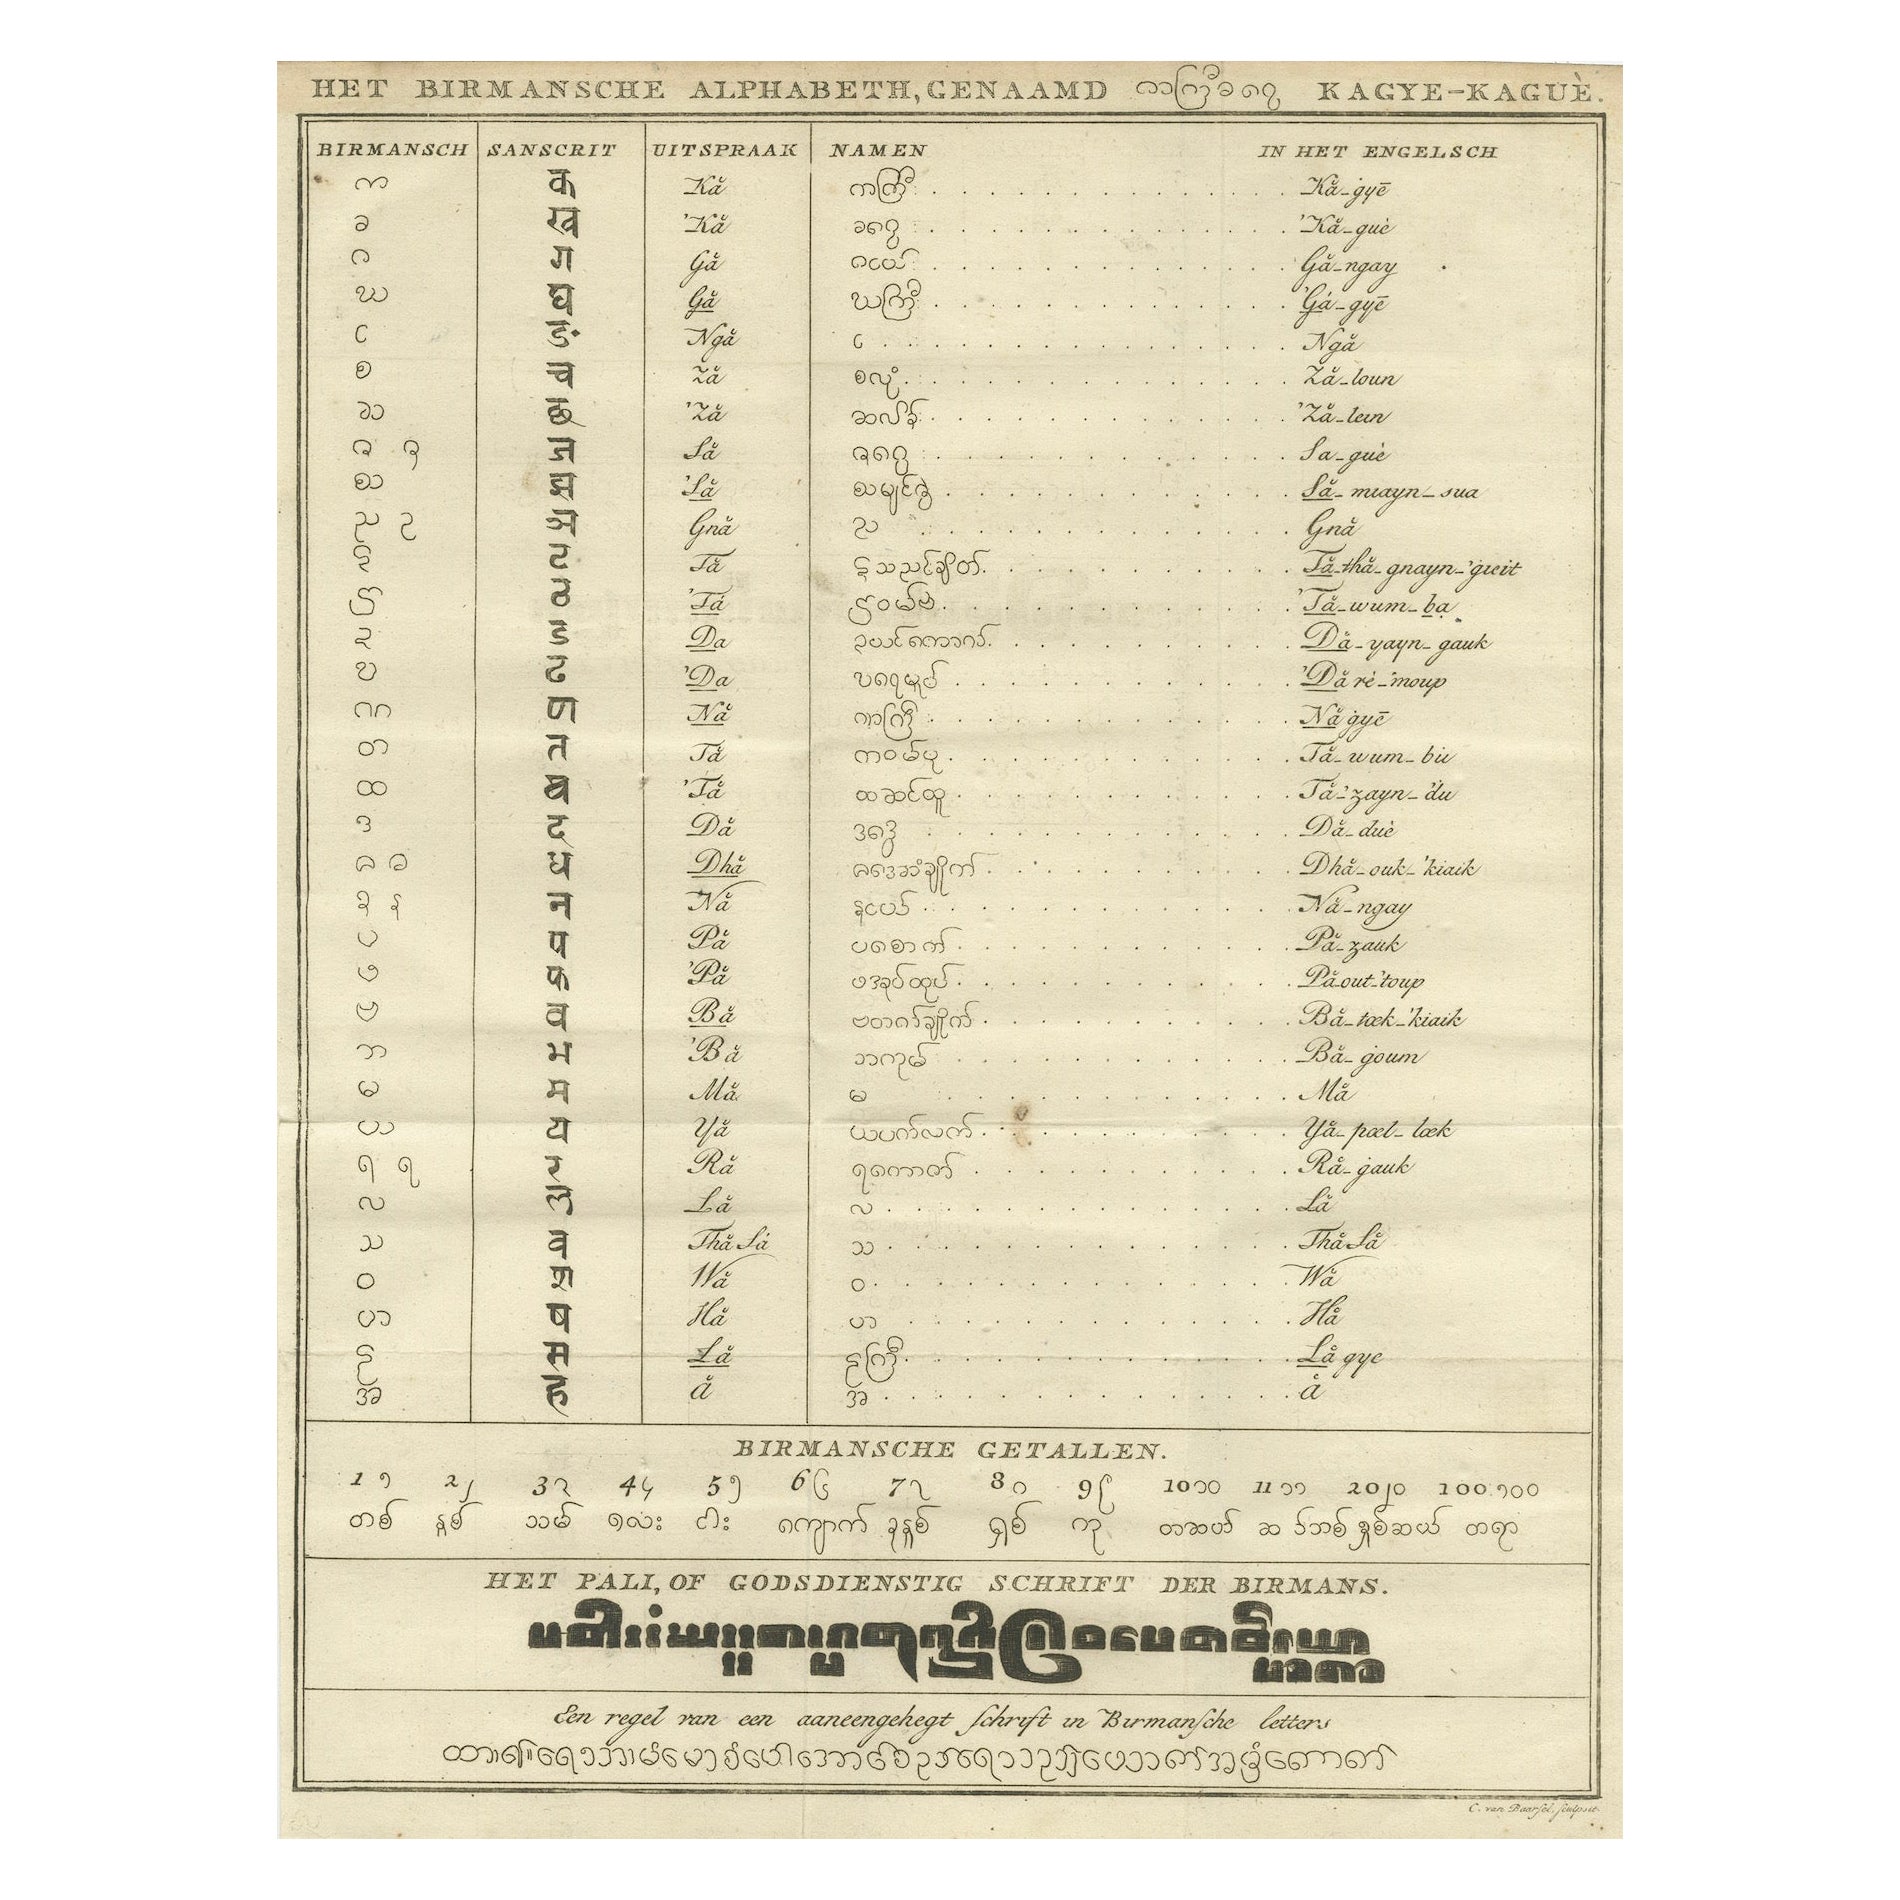 HET BIRMANSCHE ALPHABETH, GENAAMD ကကြီးခခွေ KAGYE-KAGUÈ.
BIRMANSCH SANSCRIT UITSPRAAK NAMEN IN HET ENGELSCH
က क Kă ကကြီး Kă-gyē
ခ ख 'Kă ခခွေ 'Kă-guè
ဂ ग Gă ဂငယ် Gă-ngay
ဃ घ Gă ဃကြီး 'Gá-gyē
င ङ Ngă င Ngă
စ च Ză စလုံး Ză-loun
ဆ छ 'Ză ဆလိန် 'Ză-lein
ဇ ज Să ဇဂွေ Sa-guè
ဈ 'Să Să-miayn-sua
ည ဥ ञ Gnă ည Gnă
ဋ ट Tă Tă-thă-gnayn-'gieit
ဌ 'Tá ဌဝမ်ဗ 'Tă-wum-ba
ဍ ड Da Dă-yayn-gauk
ဎ ढ 'Da ဎရေမှုပ် 'Dă ré-'moup
ဏ ण Nă ဏကြီး Nă gyē
တ त Tă တဝမ်ပု Tă-wum-bu
ထ थ 'Tă ထဆင်ထူ Tă-'zayn-'du
ဒ द Dă ဒဒွေ Dă-duè
ဓ ध Dhă Dhă-ouk-'kiaik
န न Nă နငယ် Nă-ngay
ပ प Pă ပစောက် Pă-zauk
ဖ फ 'Pă ဖဒုပ်ထုပ် Pă out-'toup
ဗ ब Bă ဗတက်ချိုက် Bă-tœk-'kiaik
ဘ भ 'Bă ဘကုမ် Bă-goum
မ म Mă မ Mă
ယ य Yă ယပက်လက် Yă-pœl-lœk
ရ ရ र Ră ရကောက် Ră-gauk
လ Lă လ Lă
သ व Thă Sá သ Thă Să
ဝ श Wă ဝ Wă
ဟ ष Hă ဟ Hă
ဠ स Lă ဠကြီး Lă gye
အ ह ă အ ă
BIRMANSCHE GETALLEN.
1 ၁ 2 ၂ 3 ၃ 4 ၄ 5 ၅ 6 ၆ 7 ၇ 8 ၈ 9 ၉ 10 ၁၀ 11 ၁၁ 20 ၂၀ 100 ၁၀၀
တစ် နှစ် သမ် လေး ငါး ခြောက် ခုနှစ် ရှစ် ကု တဆယ် နှစ်ဆယ် တရာ
HET PALI, OF GODSDIENSTIG SCHRIFT DER BIRMANS.
Een regel van een aaneengehegt schrift in Birmansche letters
C. van Baarsel, sculpsit.